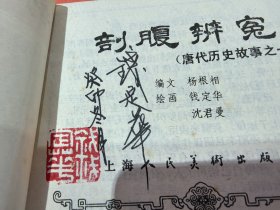 剖腹辨冤
(唐代历史故事之一
编文 杨根相
绘画 钱定华
沈君曼
钱定华
癸卯冬月
上海人民美術出版